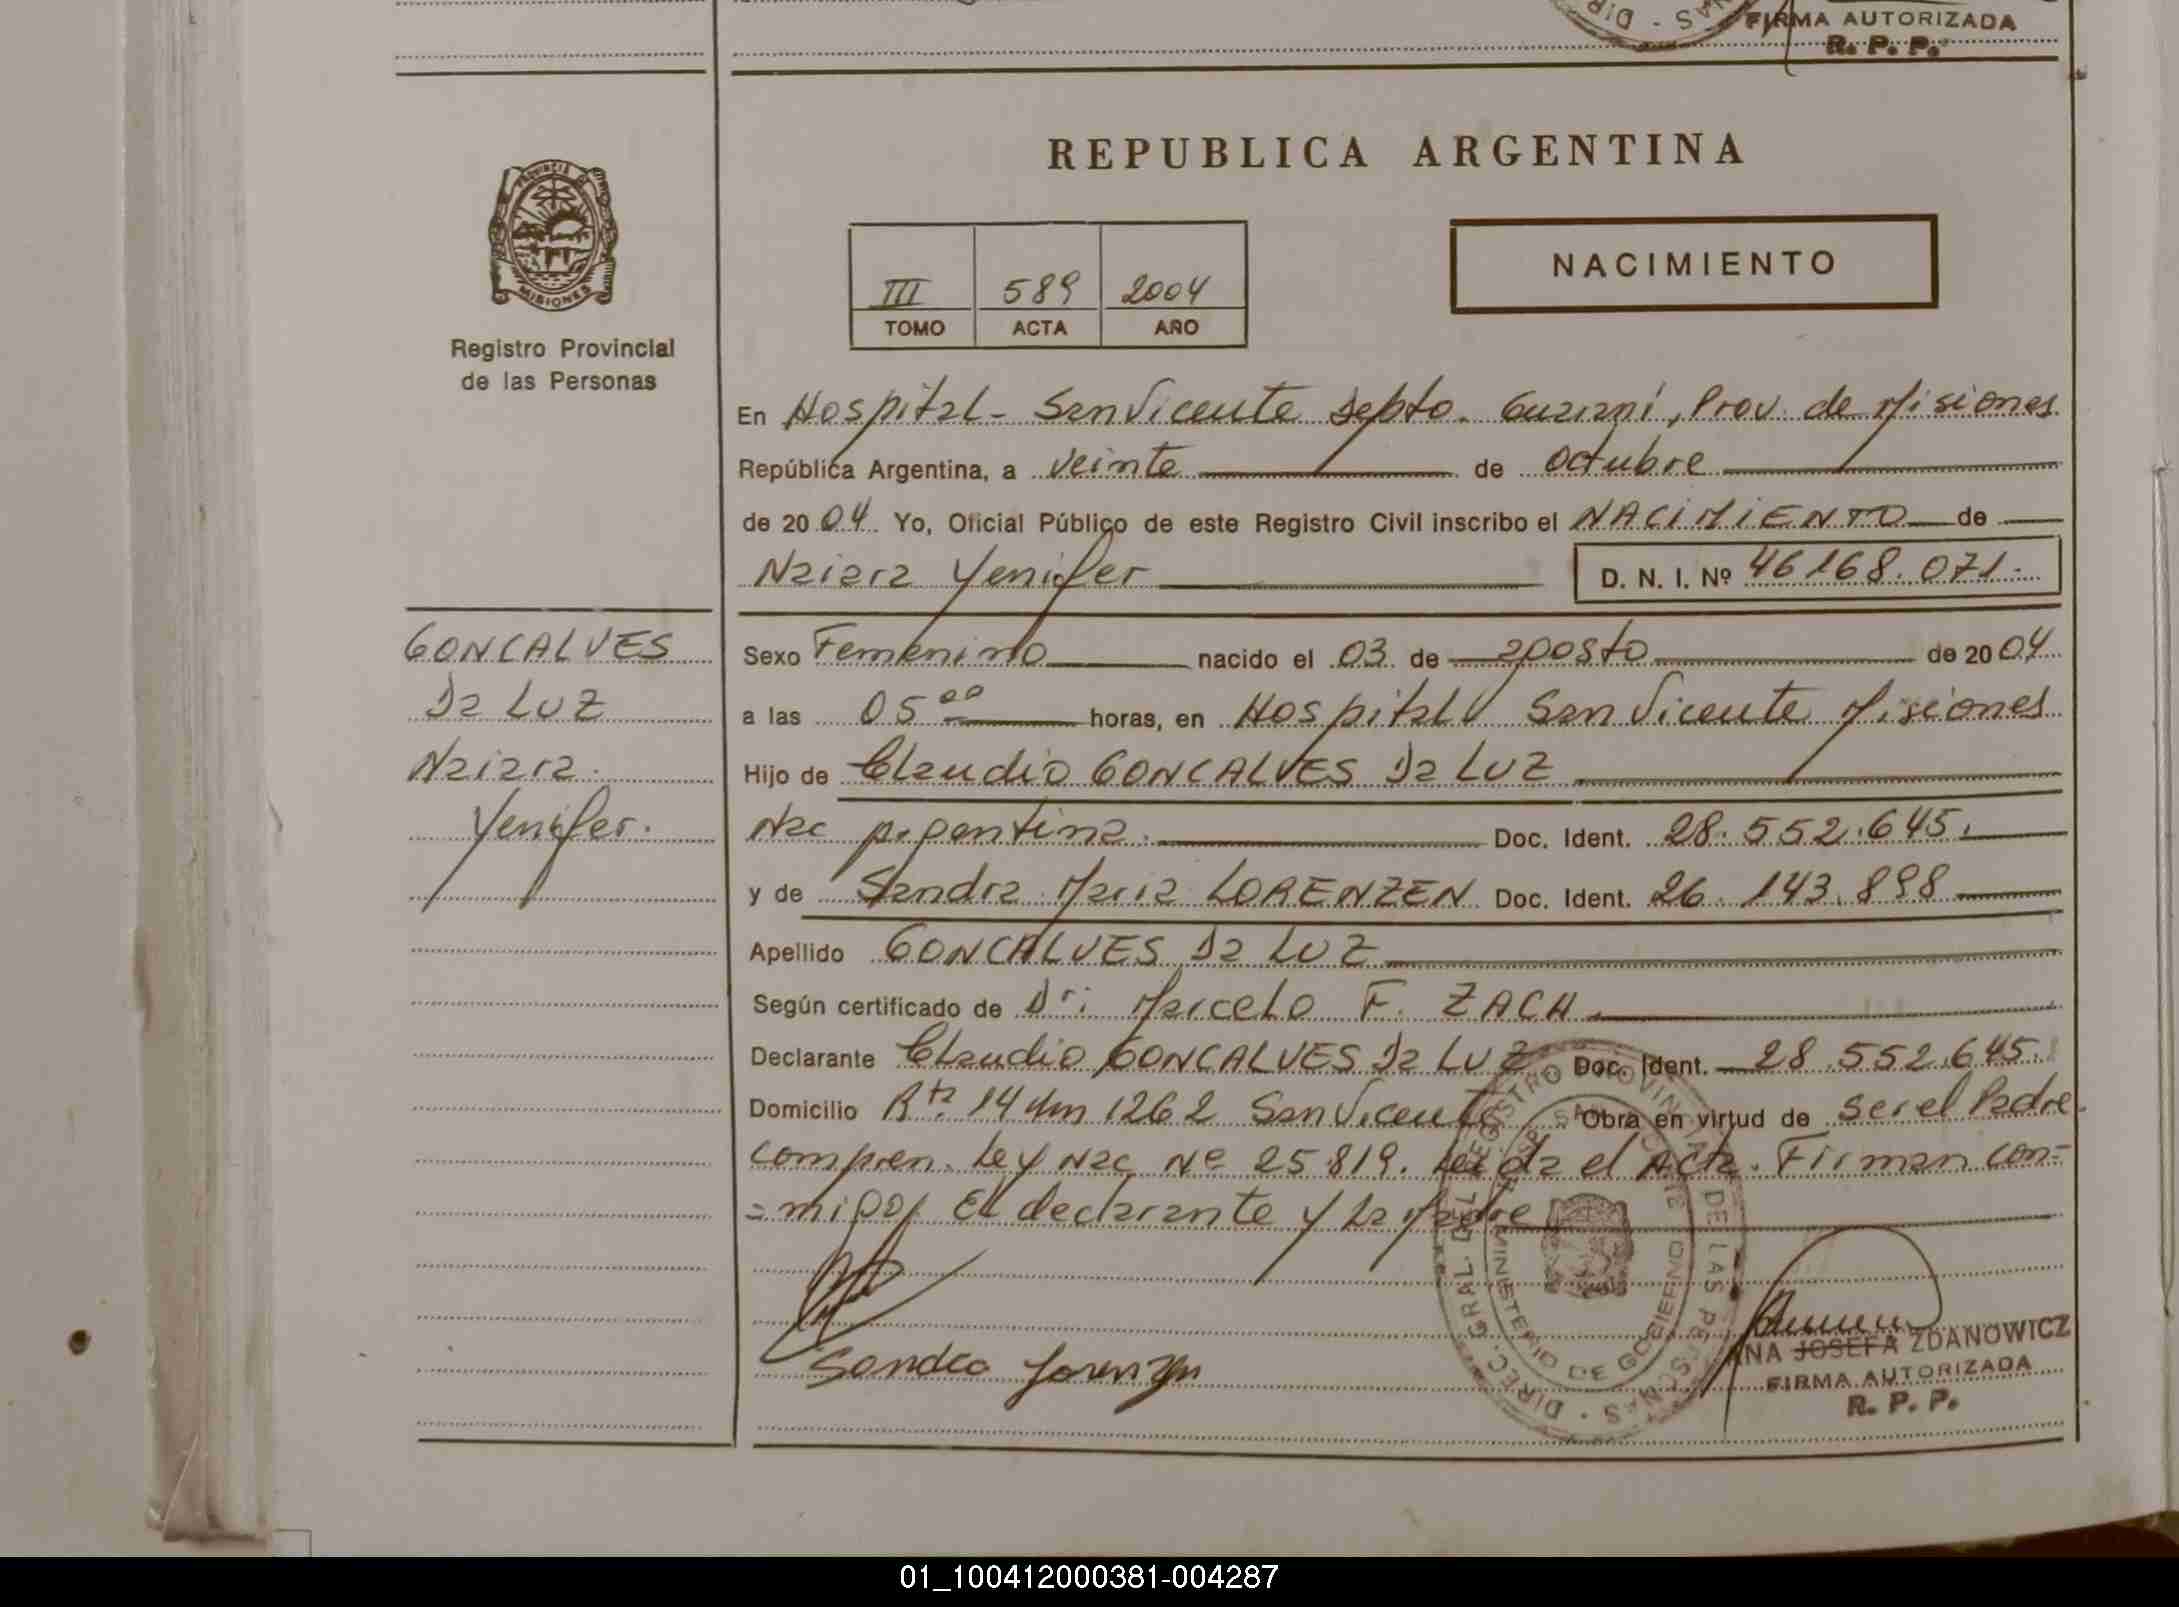 FIRMA AUTORIZADA
R. P. P.
PROVINCIA DE
MISIONES
Registro Provincial
de las Personas
REPUBLICA ARGENTINA
III 589 2004
TOMO ACTA AÑO
NACIMIENTO
En Hospital - San Vicente Depto. Guaraní, Prov. de Misiones
República Argentina, a veinte de octubre
de 2004 Yo, Oficial Público de este Registro Civil inscribo el NACIMIENTO de
Naiara Yenifer D. N. I. Nº 46168.071.-
GONCALVES
Da LUZ
Naiara
Yenifer.
Sexo Femenino nacido el 03 de agosto de 2004
a las 05 00 horas, en Hospital San Vicente Misiones
Hijo de Claudio GONCALVES Da LUZ
Nac Argentina. Doc. Ident. 28.552.645.
y de Sandra Maria LORENZEN Doc. Ident. 26.143.898
Apellido GONCALVES Da LUZ
Según certificado de Dr: Marcelo F. ZACH.
Declarante Claudio GONCALVES Da LUZ Doc. Ident. 28.552.645.
Domicilio Rta. 14 Km 1262 San Vicente Obra en virtud de ser el Padre.
compren. Ley Nac Nº 25.819. Leida el Acta. Firman con=
=migo, El declarante y La Madre
Sandra Lorenzen
DIREC. GRAL. DEL REGISTRO PROVINCIAL DE LAS PERSONAS
MINISTERIO DE GOBIERNO
ANA JOSEFA ZDANOWICZ
FIRMA AUTORIZADA
R. P. P.
01_100412000381-004287